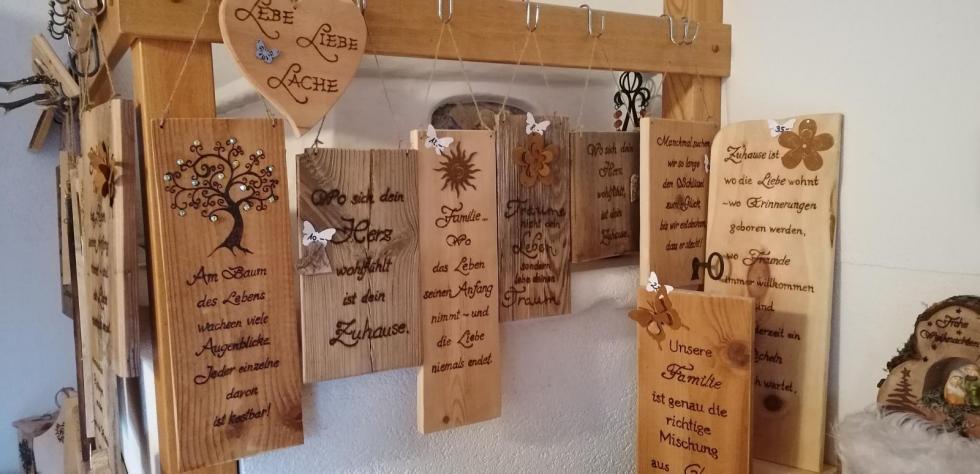 Lebe
Liebe
Lache
Am Baum
des Lebens
wachsen viele
Augenblicke
Jeder einzelne
davon
ist kostbar!
Wo sich dein
10
Herz
wohlfühlt
ist dein
Zuhause.
Familie...
Wo
das Leben
seinen Anfang
nimmt - und
die Liebe
niemals endet.
Träume
nicht dein
Leben
sondern
lebe deinen
Traum
Wo sich dein
Herz
wohlfühlt,
ist dein
Zuhause.
Manchmal suchen
wir so lange
den Schlüssel
zum Glück
bis wir entdecken
dass er steckt!
35,-
Zuhause ist
wo die Liebe wohnt
-wo Erinnerungen
geboren werden,
wo Freunde
immer willkommen
und
ein
wartet.
Unsere
Familie
ist genau die
richtige
Mischung
aus
Frohe
Weihnachten